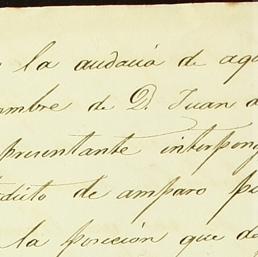 la audacia de aqu
ombre de D. Juan a
presentante interpong
dicto de amparo p
la posicion que de